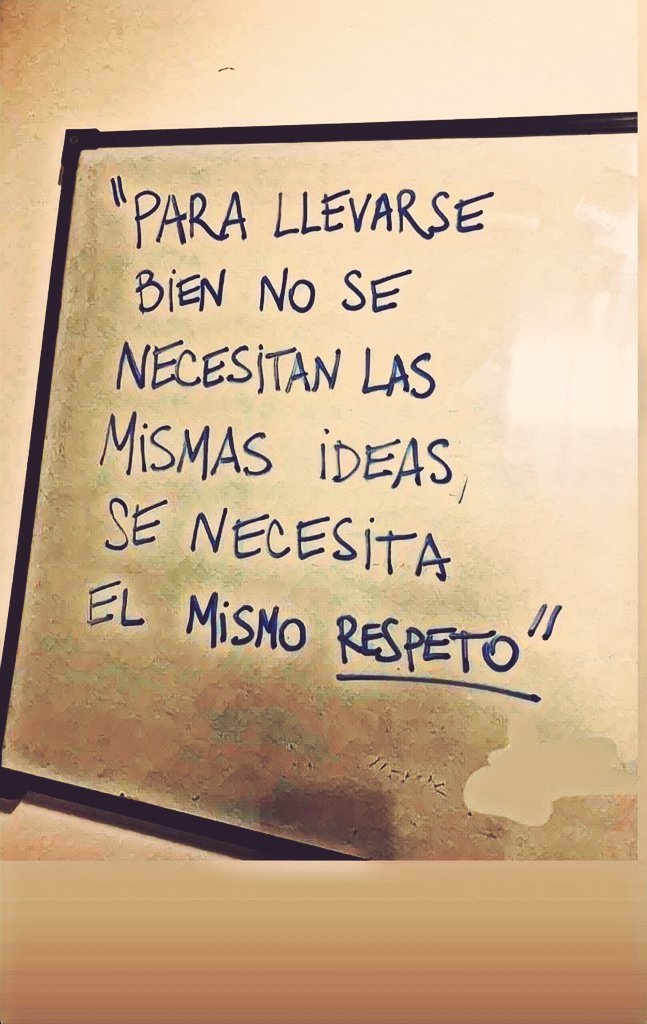 "PARA LLEVARSE
BiEN NO SE
NECESiTAN LAS
MiSMAS iDEAS,
SE NECESiTA
EL MiSMO RESPETO"